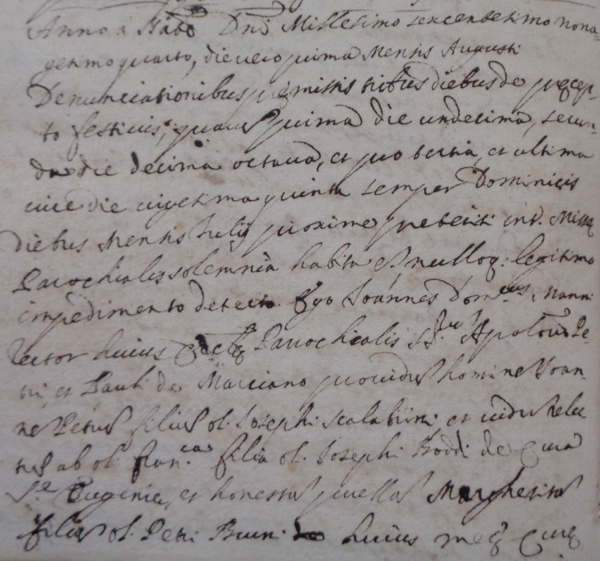 Anno a Nato Dnō Millesimo sexcentesimo nona-
gesimo quarto, die vero prima Mensis Augusti
Denunciationibus premissis tribus diebus de precep-
to festivis, quarum prima die undecima, secun-
da die decima octava, et pro tertia, et ultima
vice die vigesima quinta semper Dominicis
diebus Mensis Julij proxime preteriti int. Missę
Parochialis solemnia habita est, nulloq: legitimo
impedimento detecto. Ego Joannes Dom.cus Nanni
Rector huius Parochialis SS. Apolorū Pe-
tri, et Pauli de Marciano providum hominem Joan-
nē Petrum filium ol. Josephi Scalabrini et viduū relic
tum ab ol. Fran.ca filia ol. Josephi Boddi de Cura
S.te Eugenie, et honestam puellam Margheritam
filiam ol. Petri Burni de huius meę Curę